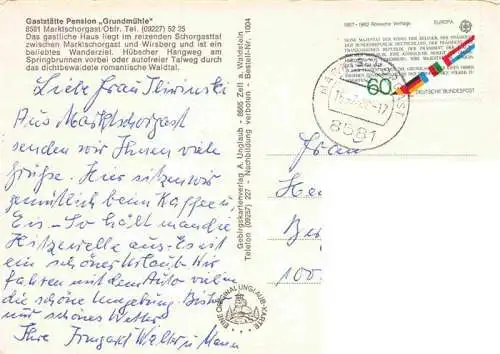 Gaststätte Pension „Grundmühle"
8591 Marktschorgast/Obfr. Tel. (09227) 52 25
Das gastliche Haus liegt im reizenden Schorgasttal
zwischen Marktschorgast und Wirsberg und ist ein
beliebtes Wanderziel. Hübscher Hangweg am
Springbrunnen vorbei oder autofreier Talweg durch
das dichtbewaldete romantische Waldtal.
Liebe Frau
Aus Marktschorgast
senden wir Ihnen viele
Grüße. Hier sitzen wir
gemütlich beim Kaffee u.
Eis – So hält man die
Hitzewelle aus. Es ist
ein schöner Urlaub. Wir
fahren mit dem Auto viel in
die schöne Umgebung. Bisher
nur schönes Wetter
Ihre Irmgard Walter u. Mann
Gebirgskartenverlag A. Unglaub · 8665 Zell i. Waldstein,
Telefon (09257) 227 · Nachbildung verboten · Bestell-Nr. 1004
EINE ORIGINAL UNGLAUB-KARTE
1957–1982 Römische Verträge EUROPA
60
DEUTSCHE BUNDESPOST
8581
Frau
He
Be
100